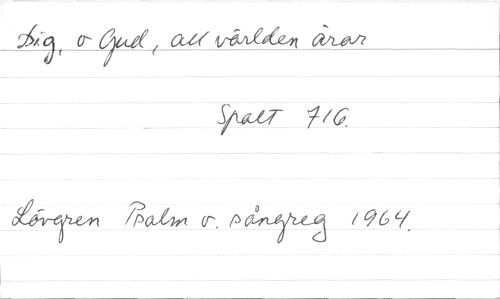 Dig, o Gud, all världen ärar
Spalt 716.
Lövgren Psalm o. sångreg 1964.